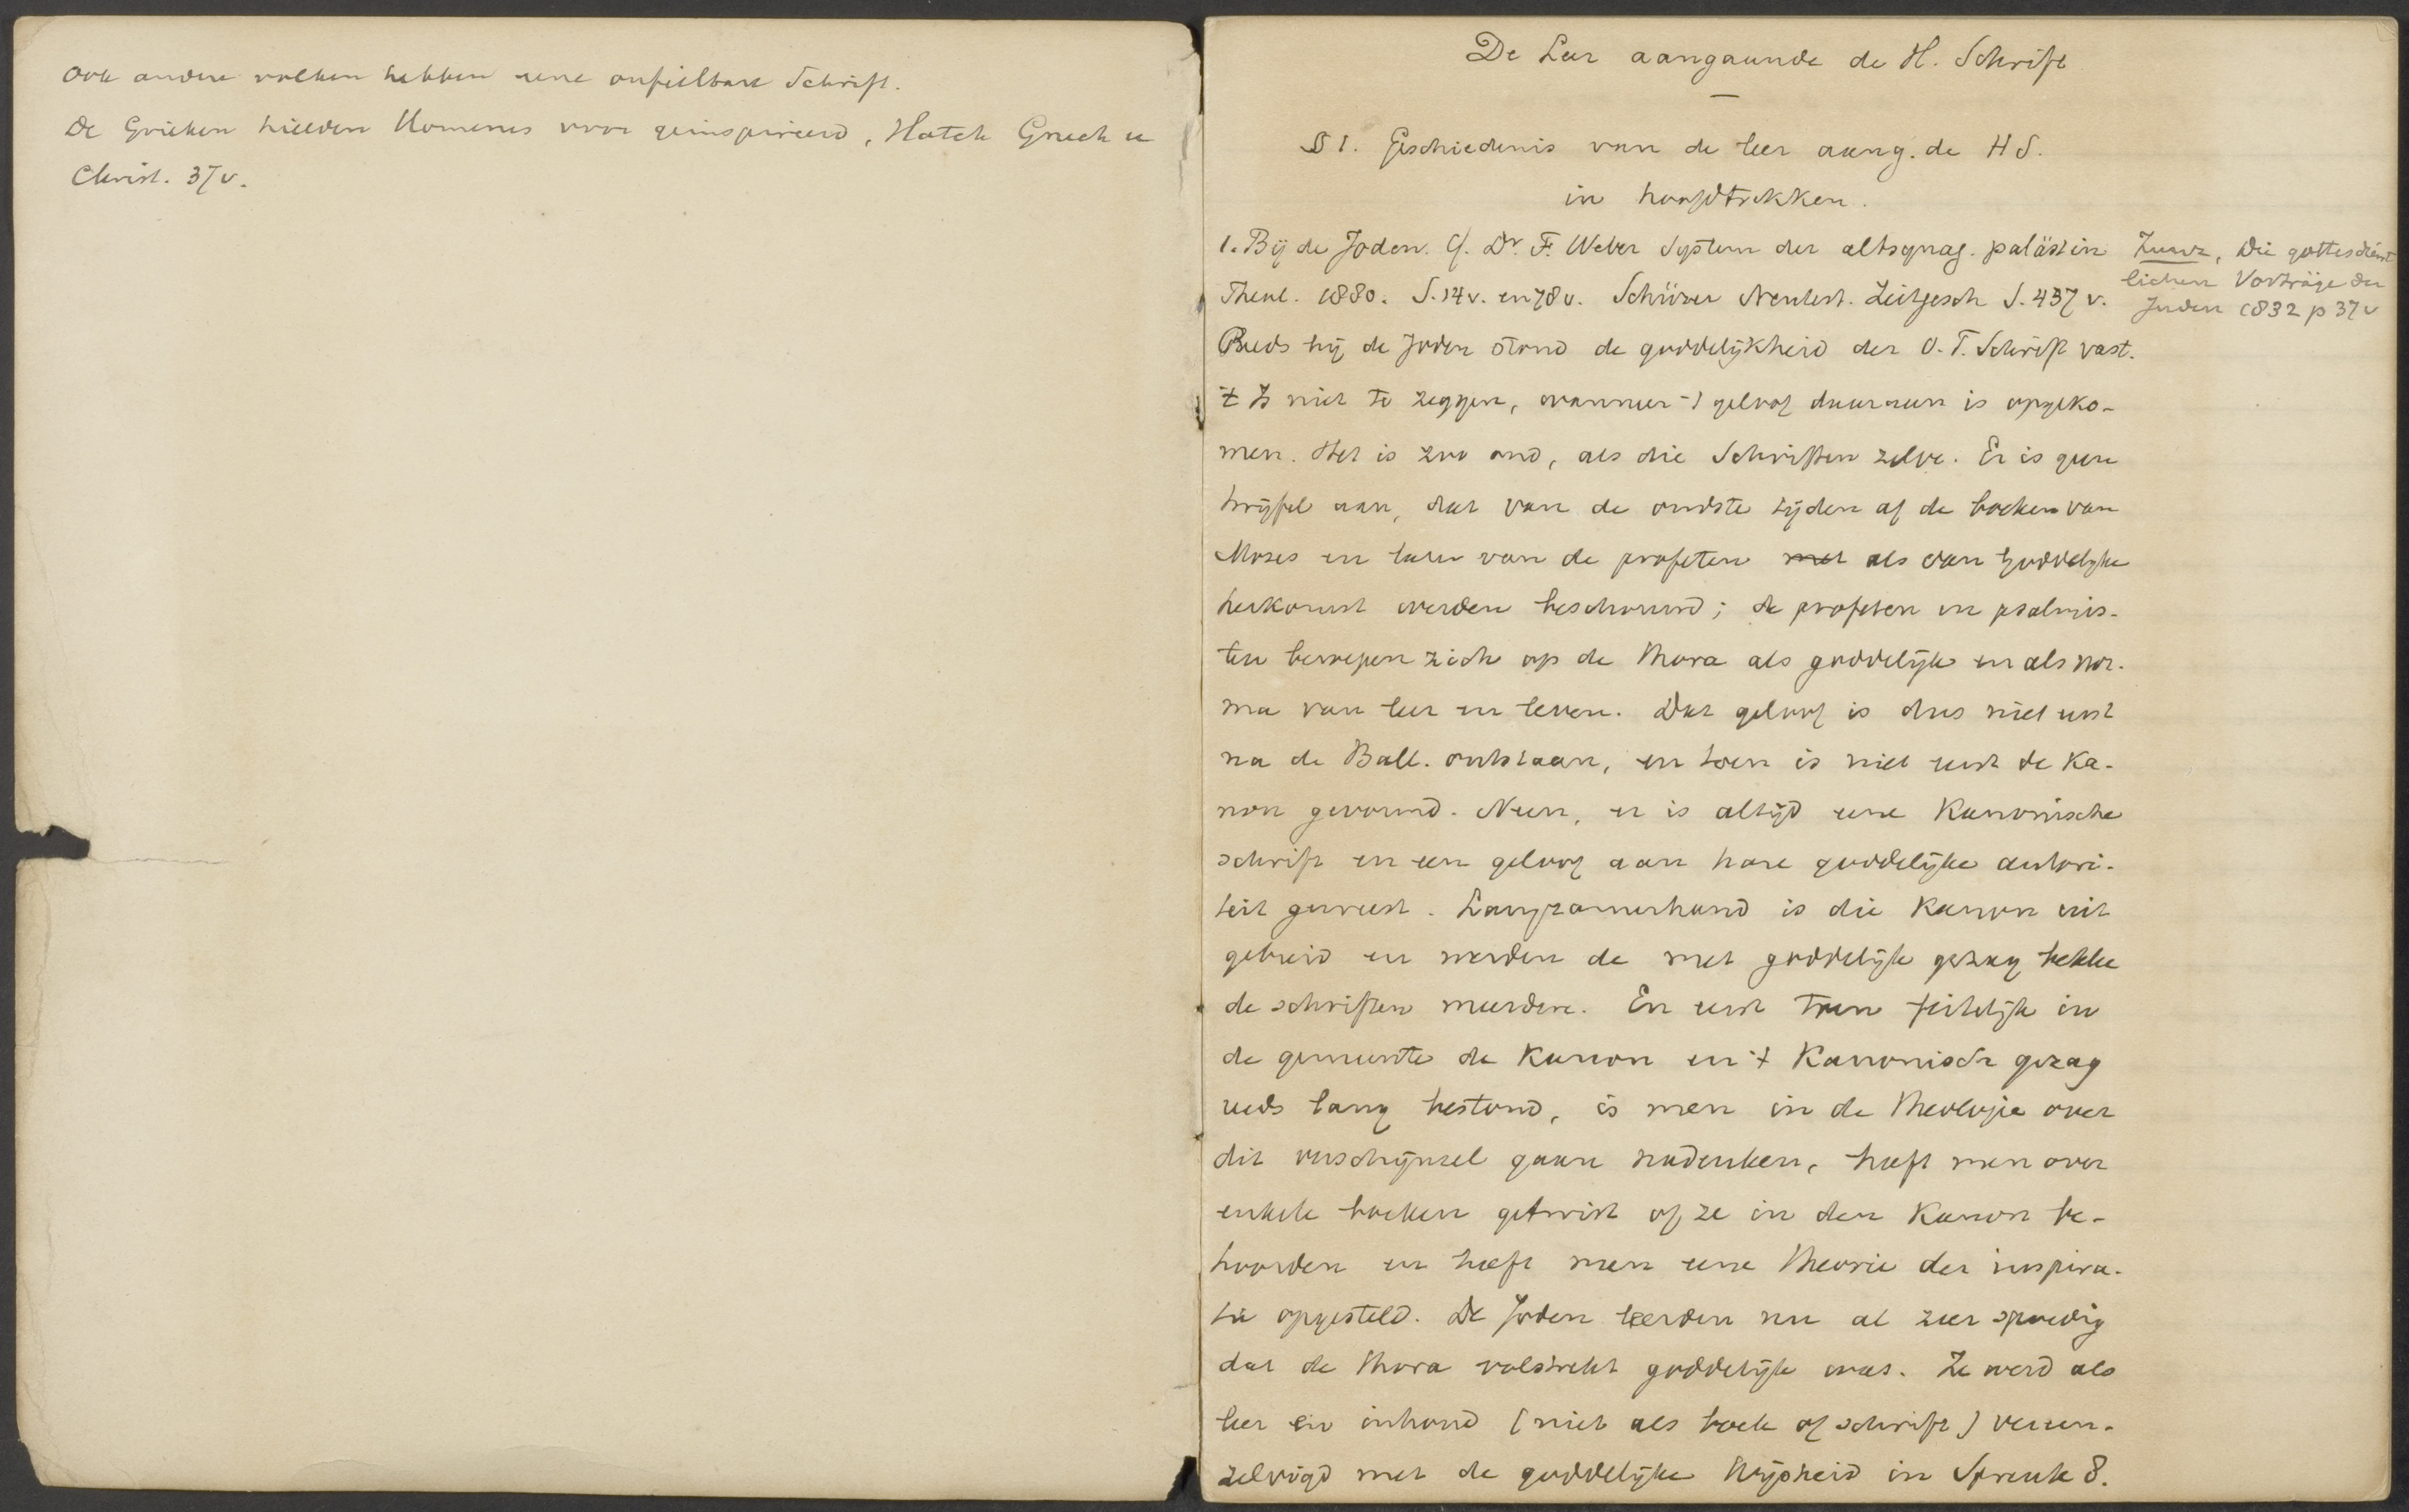 Ook andere volken hebben eene onfeilbare Schrift.
De Grieken hielden Homerus voor geinspireerd, Hatch Griech u
Christ. 37 v.
De Leer aangaande de H. Schrift
—
§ 1. Geschiedenis van de leer aang. de H S.
in hoofdtrekken.
1. Bij de Joden. Cf. Dr. F. Weber System der altsynag. palästin
Theol. 1880. S. 14 v. en 78 v. Schürer Neutest. Zeitgesch S. 437 v.
Zunz, Die gottesdienst
lichen Vorträge der
Juden 1832 p 37 v
Reeds bij de Joden stond de goddelijkheid der O.T. Schrift vast.
't Is niet te zeggen, wanneer 't geloof daaraan is opgeko-
men. Het is zoo oud, als die Schriften zelve. Er is geen
twijfel aan, dat van de oudste tijden af de boeken van
Mozes en later van de profeten met als van goddelijke
herkomst werden beschouwd; de profeten en psalmis-
ten beroepen zich op de Thora als goddelijk en als nor-
ma van leer en leven. Dat geloof is dus niet eerst
na de Ball. ontstaan, en toen is niet eerst de Ka-
non gevormd. Neen, er is altijd eene Kanonische
schrift en een geloof aan hare goddelijke autori-
teit geweest. Langzamerhand is die Kanon uit
gebreid en werden de met goddelijk gezag bekle
de schriften meerdere. En eerst toen feitelijk in
de gemeente de Kanon en 't Kanonisch gezag
reeds lang bestond, is men in de Theologie over
dit verschijnsel gaan nadenken, heeft men over
enkele boeken getwist of ze in den Kanon be-
hoorden en heeft men eene theorie der inspira-
tie opgesteld. De Joden leerden nu al zeer spoedig
dat de Thora volstrekt goddelijk was. Ze werd als
leer en inhoud (niet als boek of schrift) vereen-
zelvigd met de goddelijke Wijsheid in Spreuk 8.